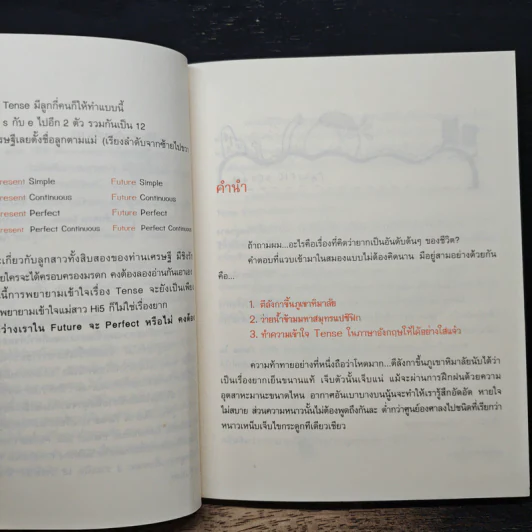 Tense มีลูกกี่คนก็ให้ทำแบบนี้
s กับ e ไปอีก 2 ตัว รวมกันเป็น 12
เลยตั้งชื่อลูกตามแม่ (เรียงลำดับจากซ้ายไปขวา
Simple Future Simple
Continuous Future Continuous
Perfect Future Perfect
Perfect Continuous Future Perfect Continuous
เกี่ยวกับลูกสาวทั้งสิบสองของท่านเศรษฐี
ใครจะได้ครอบครองมรดก คงต้องลองอ่านกัน
นี้การพยายามเข้าใจเรื่อง Tense จะยังเป็น
พยายามเข้าใจแม่สาว Hi5 ก็ไม่ใช่เรื่องยาก
ว่างเราใน Future จะ Perfect หรือไม่ คงต้อง
คำนำ
ถ้าถามผม...อะไรคือเรื่องที่คิดว่ายากเป็นอันดับต้นๆ ของชีวิต?
คำตอบที่แวบเข้ามาในสมองแบบไม่ต้องคิดนาน มีอยู่สามอย่างด้วยกัน
คือ...
1. ตีลังกาขึ้นภูเขาหิมาลัย
2. ว่ายน้ำข้ามมหาสมุทรแปซิฟิก
3. ทำความเข้าใจ Tense ในภาษาอังกฤษให้ได้อย่างใสแจ๋ว
ความท้าทายอย่างที่หนึ่งถือว่าโหดมาก...ตีลังกาขึ้นภูเขาหิมาลัยนับได้ว่า
เป็นเรื่องยากเย็นขนานแท้ เจ็บตัวนั้นเจ็บแน่ แม้จะผ่านการฝึกฝนด้วยความ
อุตสาหะมานะขนาดไหน อากาศอันเบาบางบนนู้นจะทำให้เรารู้สึกอึดอัด หายใจ
ไม่สบาย ส่วนความหนาวนั้นไม่ต้องพูดถึงกันละ ต่ำกว่าศูนย์องศาลงไปชนิดที่เรียกว่า
หนาวเหน็บเจ็บไขกระดูกทีเดียวเชียว